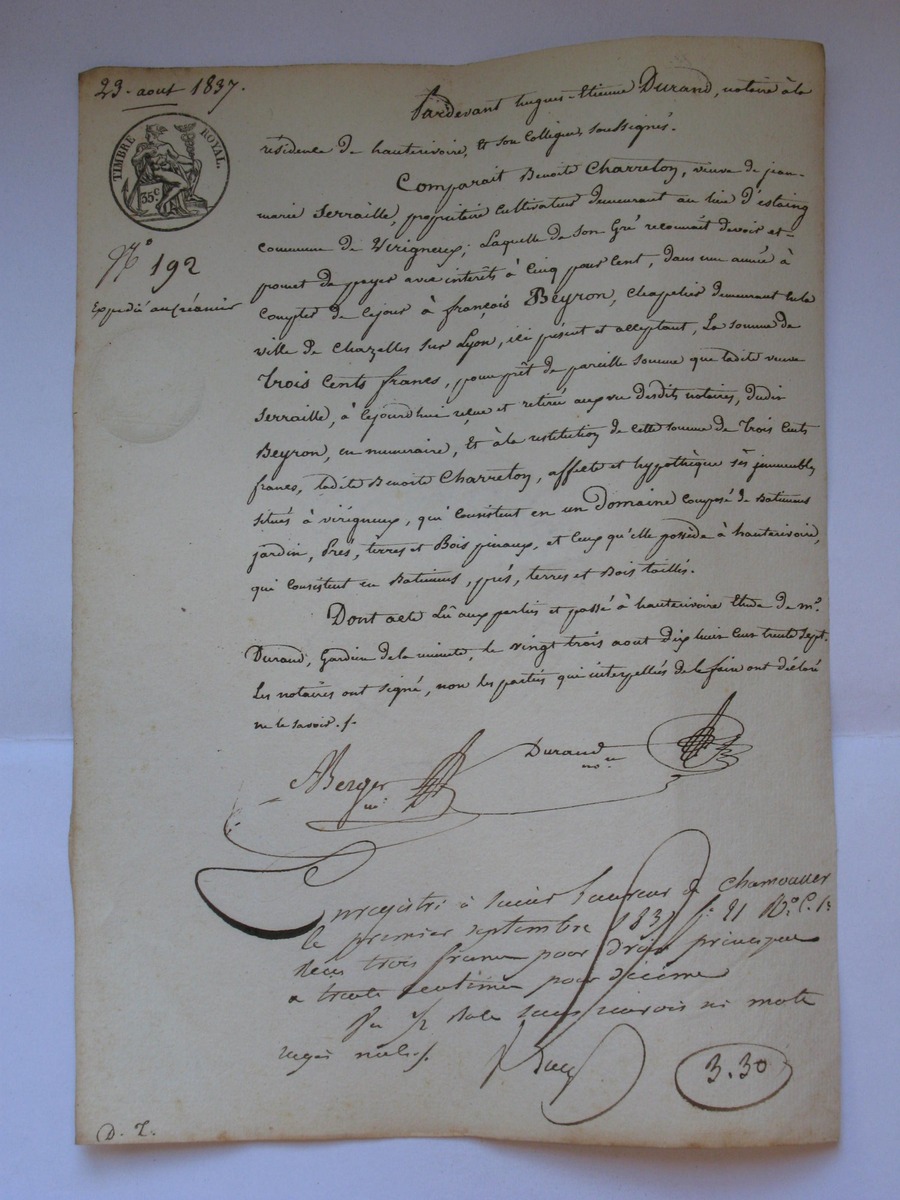 23. aout 1837.
TIMBRE ROYAL.
35c
N° 192
Expedié au créancier
Pardevant hugues-Etienne Durand, notaire à la
residence de hauterivoire, Et son Collègue, soussignés.
Comparait Benoite Charreton, veuve de jean-
marie Serraille, propriétaire Cultivateur demeurant au lieu d'estaing
commune de Virigneux; Laquelle de son Gré reconnait devoir et
promet de payer avec interêts à Cinq pour Cent, dans une année à
Compter de Cejour à françois Beyron, chapelier demeurant en la
ville de Chazelles sur Lyon, ici présent et acceptant, La somme de
Trois Cents francs, pour prêt de pareille somme que ladite veuve
Serraille, à cejourd'hui reçue et retirée aux vu desdits notaires, dudit
Beyron, en numeraire, Et à la restitution de cette somme de Trois Cents
francs, ladite Benoite Charreton, affecte et hypothèque ses immeubles
situés à virigneux, qui Consistent en un Domaine composé de Batimens
jardin, Prés, terres et Bois pinaux, et Ceux qu'elle possède à hauterivoire,
qui Consistent en Batimens, prés, terres et Bois taillis.
Dont acte Lû aux parties et passé à hauterivoire Etude de me.
Durand, Gardien de la minute, le vingt trois aout Dix huit Cent trente Sept.
Les notaires ont signé, non les parties qui interpellées de le faire ont déclaré
ne le savoir./.
Berger
Durand
Enregistré à Saint Laurent de Chamousset
le premier septembre 1837 f. 21
reçu trois francs pour droit principal
et trente centimes pour décime
sans renvois ni mots
rayés nuls./.
3.30
D. T.